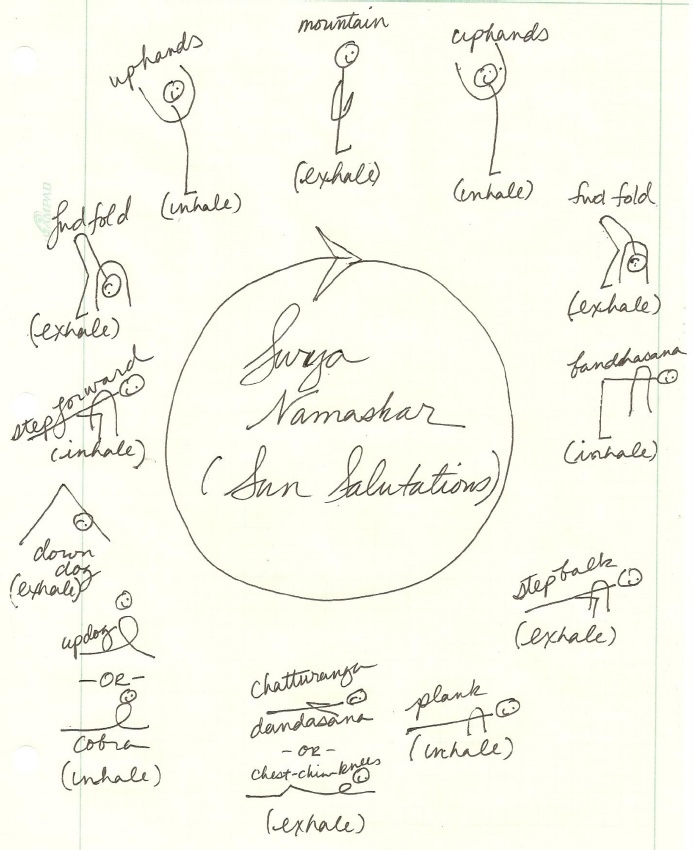 mountain
(exhale)
uphands
(inhale)
fwd fold
(exhale)
bandhasana
(inhale)
step back
(exhale)
plank
(inhale)
chatturanga
dandasana
-OR-
chest-chin-knees
(exhale)
updog
-OR-
cobra
(inhale)
down
dog
(exhale)
step forward
(inhale)
fwd fold
(exhale)
uphands
(inhale)
Surya
Namaskar
(Sun Salutations)